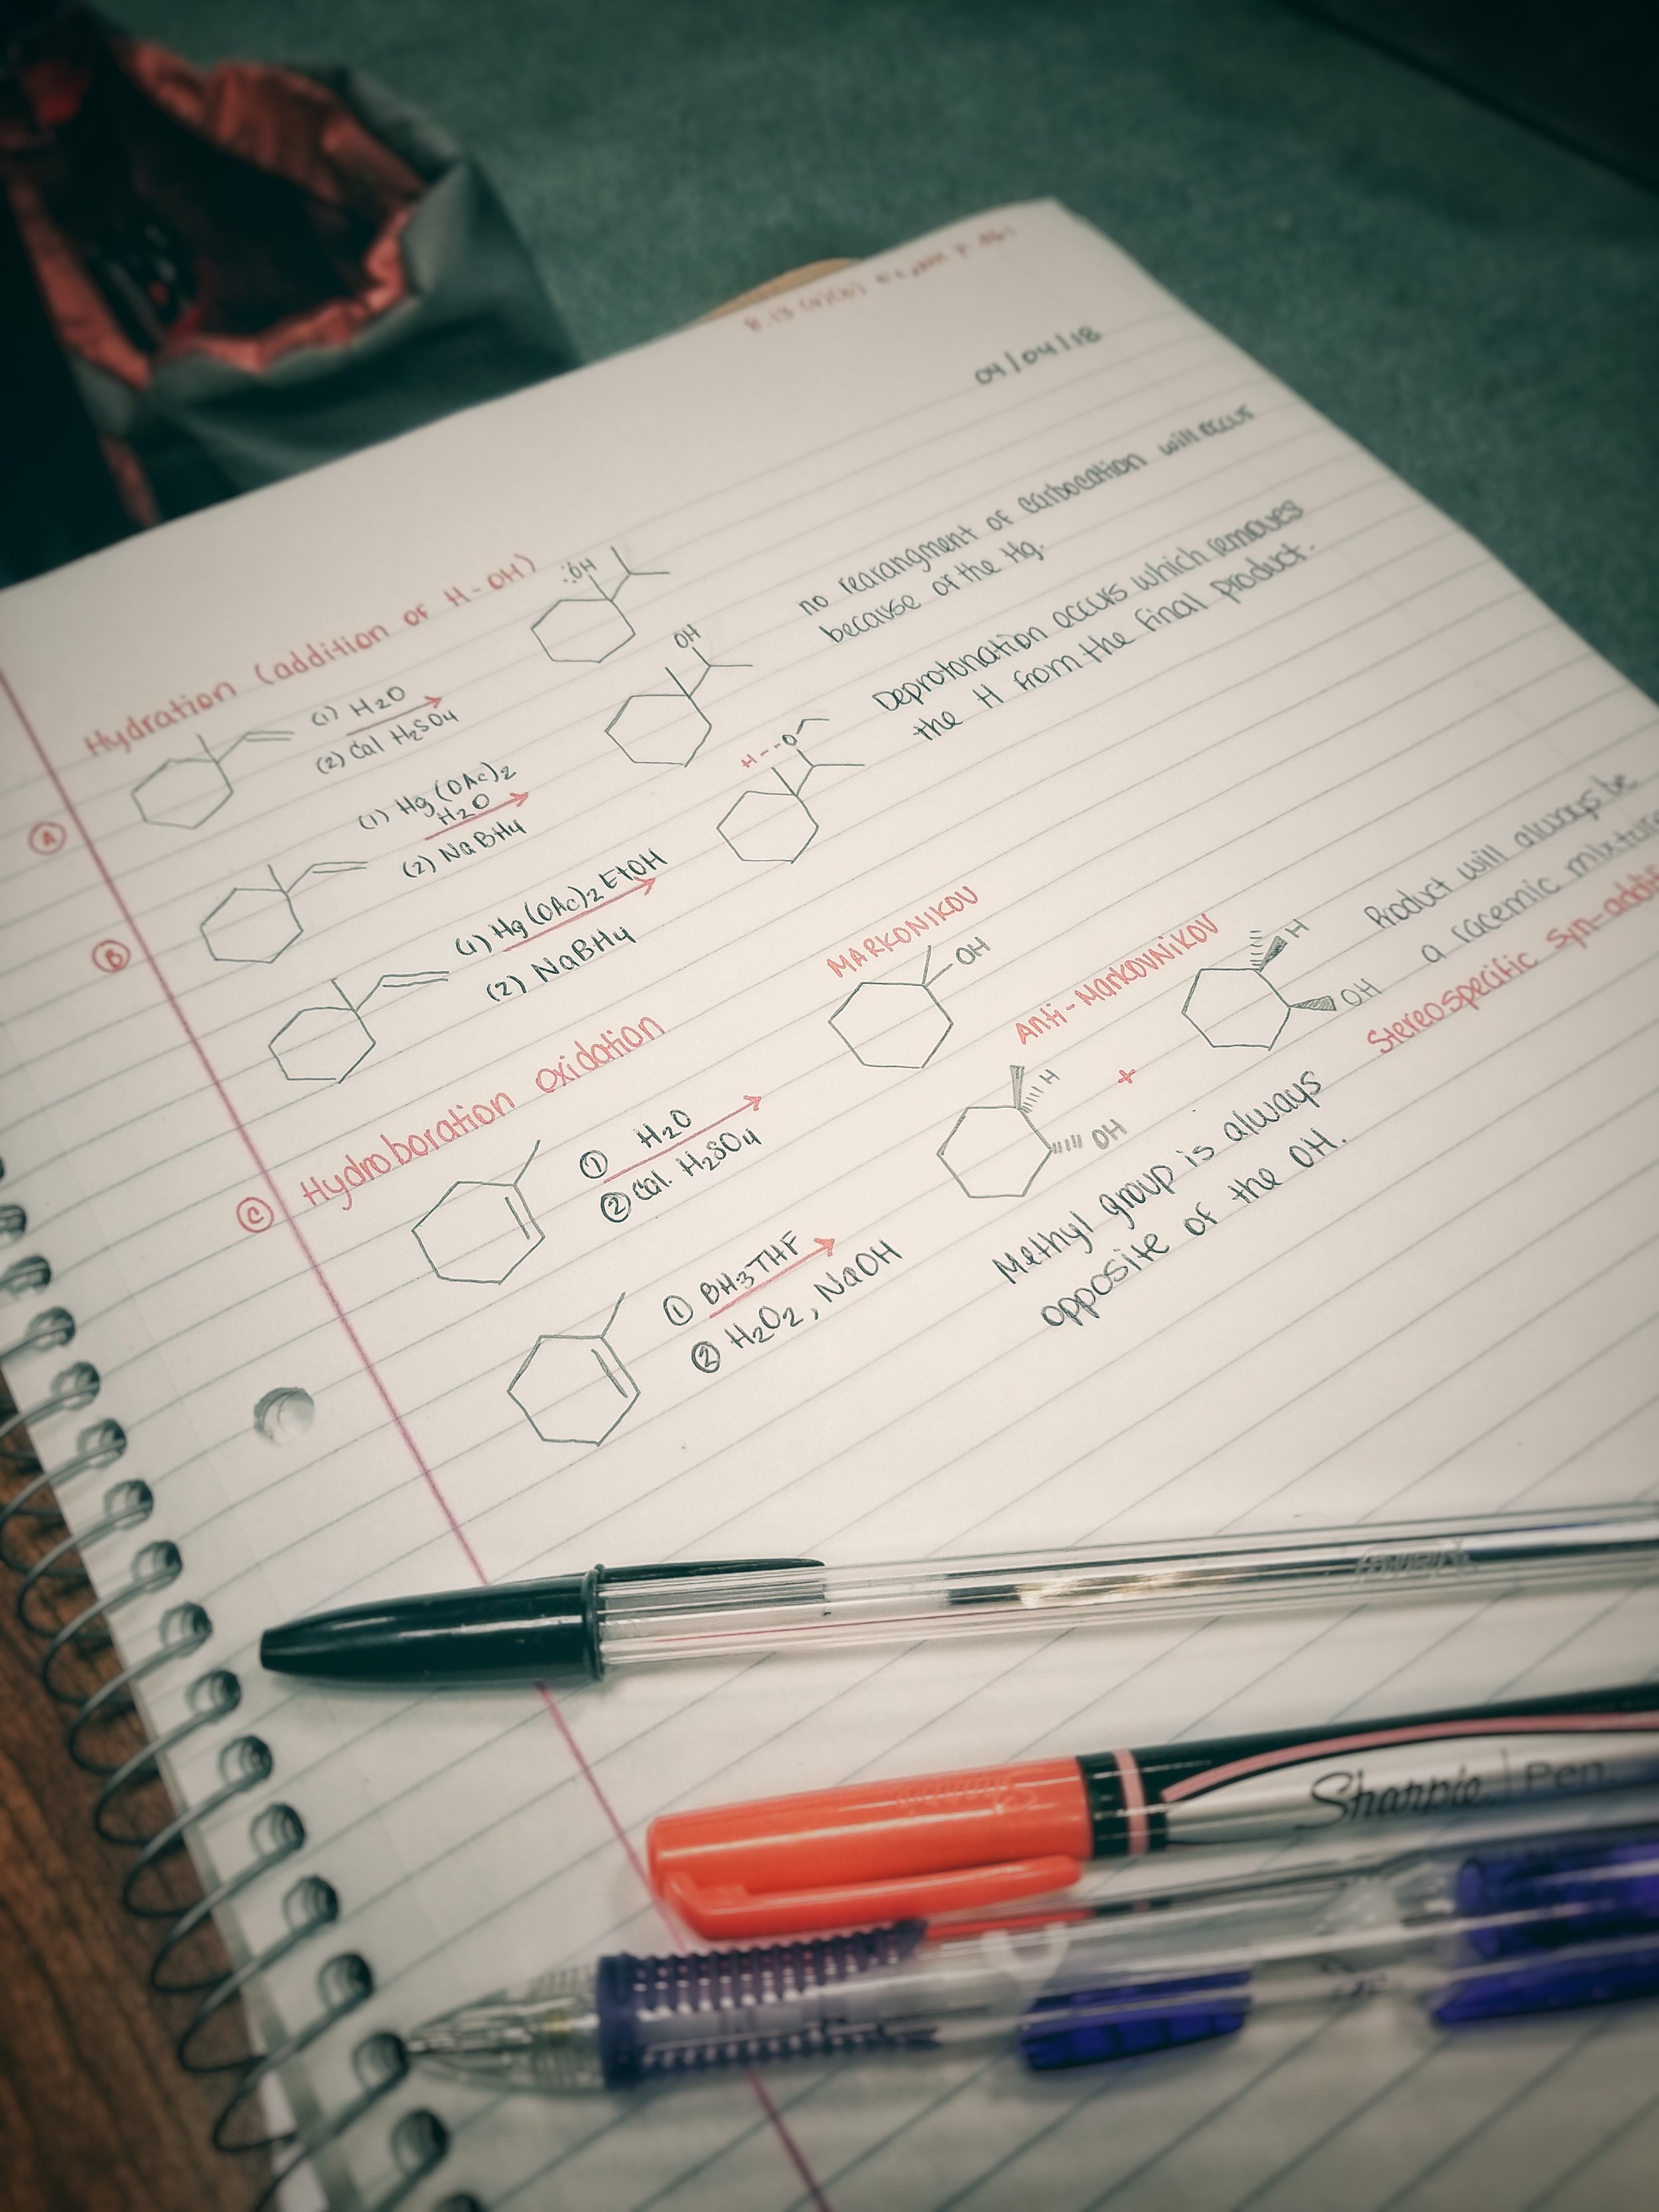 8.13 (a)(b)
04/04/18
Hydration (addition of H-OH)
:ÖH
(1) H₂O
(2) Cal H₂SO₄
no rearangment of carbocation will occur
because of the Hg.
A
OH
(1) Hg(OAc)₂
H₂O
(2) NaBH₄
Deprotonation occurs which removes
the H from the final product.
B
H---O
(1) Hg(OAc)₂ EtOH
(2) NaBH₄
C Hydroboration oxidation
MARKONIKOV
OH
① H₂O
② Cal. H₂SO₄
Anti-MARKOVNIKOV
H
OH
+
H
OH
Product will always be
a racemic mixture
Stereospecific syn-additi
① BH₃THF
② H₂O₂, NaOH
Methyl group is always
opposite of the OH.
Sharpie Pen